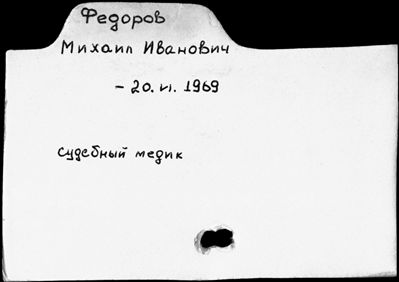 Федоров
Михаил Иванович
– 20. VI. 1969
судебный медик